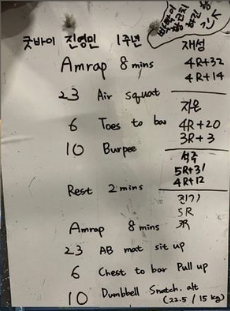 굿바이 진영민 1주년
Amrap 8 mins
23 Air squat
6 Toes to bar
10 Burpee
Rest 2 mins
Amrap 8 mins
23 AB mat sit up
6 Chest to bar Pull up
10 Dumbbell Snatch. alt
(22.5 / 15 kg)
재성
4R+32
4R+14
지운
4R+20
3R+3
석주
5R+31
4R+12
진기
5R